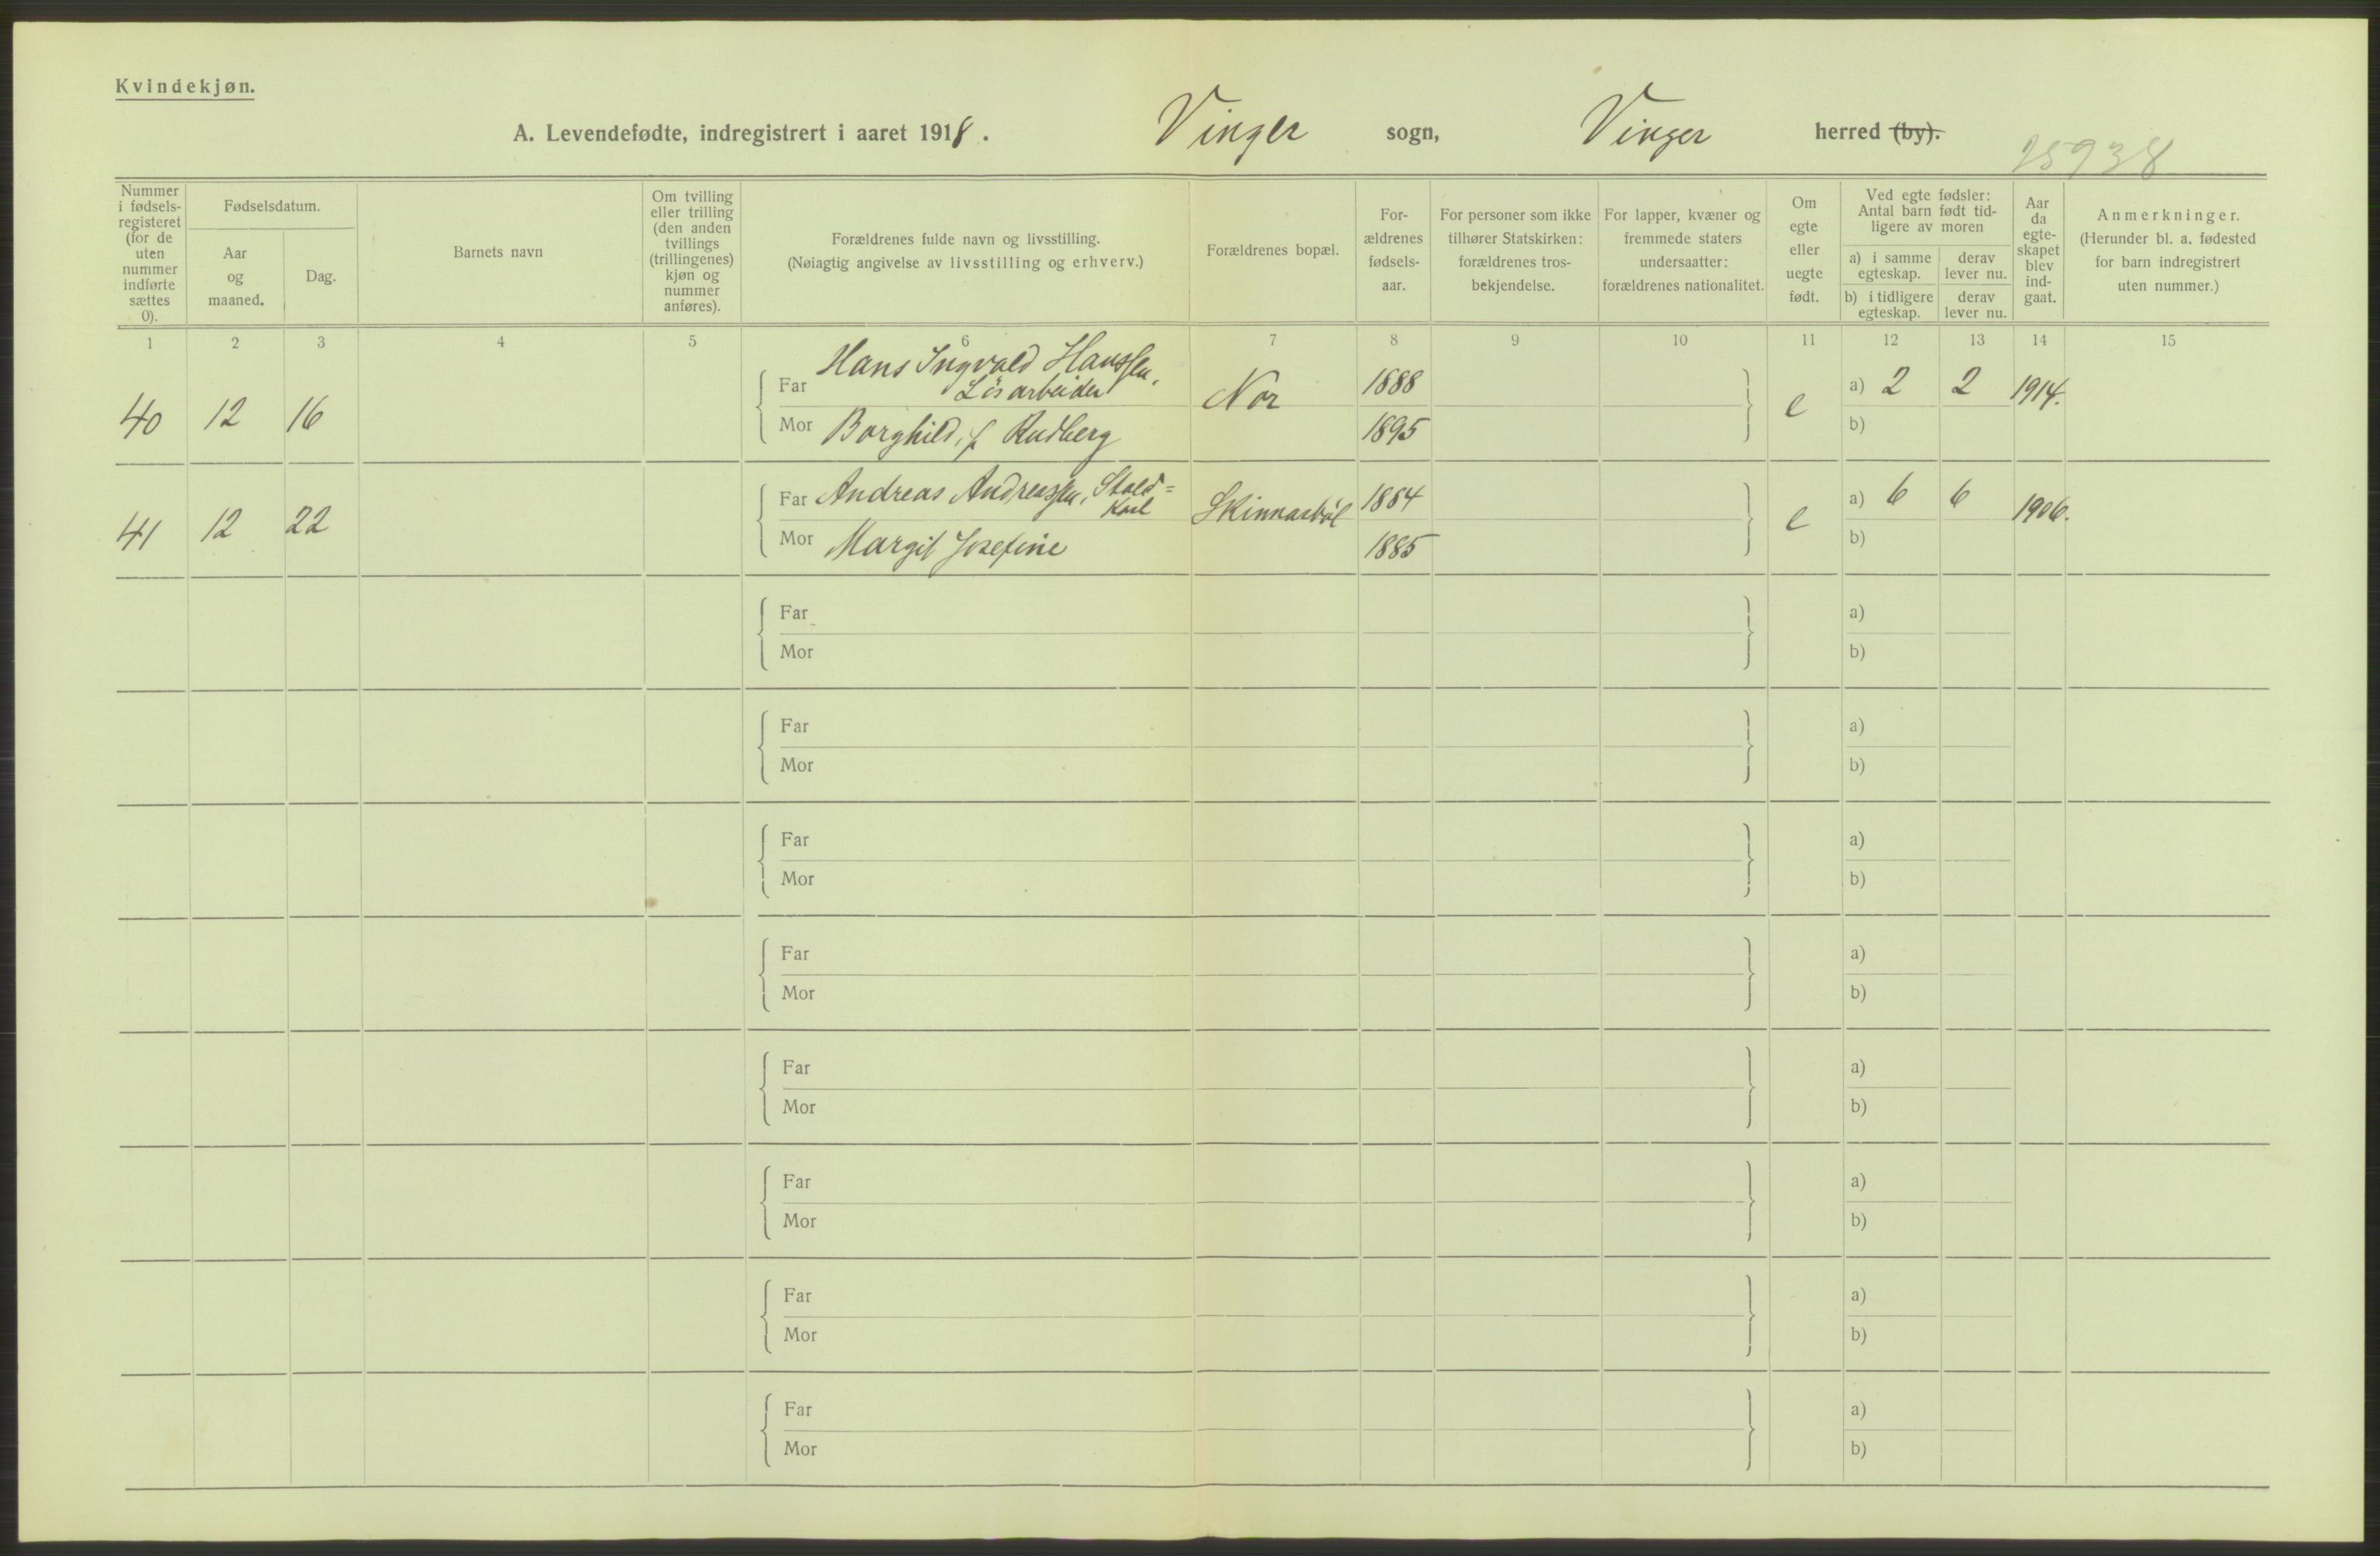 Kvindekjøn.
A. Levendefødte, indregistrert i aaret 1918. Vinger sogn, Vinger herred (by).
25938
Nummer i fødsels-registeret (for de uten nummer indførte sættes 0).
Fødselsdatum.
Aar og maaned.
Dag.
Barnets navn
Om tvilling eller trilling (den anden tvillings (trillingenes) kjøn og nummer anføres).
Forældrenes fulde navn og livsstilling.
(Nøiagtig angivelse av livsstilling og erhverv.)
Forældrenes bopæl.
For-ældrenes fødsels-aar.
For personer som ikke tilhører Statskirken: forældrenes tros-bekjendelse.
For lapper, kvæner og fremmede staters undersaatter: forældrenes nationalitet.
Om egte eller uegte født.
Ved egte fødsler: Antal barn født tid-ligere av moren
a) i samme egteskap. derav lever nu.
b) i tidligere egteskap. derav lever nu.
Aar da egte-skapet blev ind-gaat.
Anmerkninger.
(Herunder bl. a. fødested for barn indregistrert uten nummer.)
1 2 3 4 5 6 7 8 9 10 11 12 13 14 15
40 12 16 Far Hans Ingvald Hanssen, Nor 1888 e a) 2 2 1914.
Løsarbeider
Mor Borghild, f. Rudberg 1895 b)
41 12 22 Far Andreas Andreassen, Stald= Skinnarbøl 1884 e a) 6 6 1906.
karl
Mor Margit Josefine 1885 b)
Far a)
Mor b)
Far a)
Mor b)
Far a)
Mor b)
Far a)
Mor b)
Far a)
Mor b)
Far a)
Mor b)
Far a)
Mor b)
Far a)
Mor b)